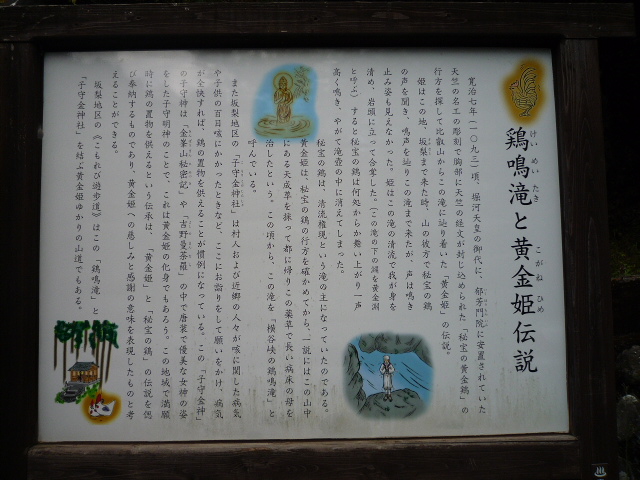 鶏鳴滝と黄金姫伝説
けいめいたき
こがねひめ
寛治七年(一〇九三)頃、堀河天皇の御代に、郁芳門院に安置されていた
天竺の名工の彫刻で胸部に天竺の経文が封じ込められた「秘宝の黄金鶏」の
行方を探して比叡山からこの滝に辿り着いた「黄金姫」の伝説。
姫はこの地、坂梨まで来た時、山の彼方で秘宝の鶏
の声を聞き、鳴声を辿りこの滝まで来たが、声は鳴き
止み姿も見えなかった。姫はこの滝の清流で我が身を
清め、岩頭に立って合掌した。(この滝の下の淵を黄金淵
と呼ぶ) すると秘宝の鶏は何処からか舞い上がり一声
高く鳴き、やがて滝壺の中に消えてしまった。
秘宝の鶏は、清流権現という滝の主になっていたのである。
黄金姫は、秘宝の鶏の行方を確かめてから、一説にはこの山中
にある天成草を採って都に帰りこの薬草で長い病床の母を
治したという。この頃から、この滝を「横谷峡の鶏鳴滝」と
呼んでいる。
また坂梨地区の「子守金神社」は村人および近郷の人々が咳に関した病気
や子供の百日咳にかかったときなど、ここにお詣りをして願いをかけ、病気
が全快すれば、鶏の置物を供えることが慣例になっている。この「子守金神」
の子守神は「金峯山秘密記」や「吉野曼荼羅」の中で唐装で優美な女神の姿
をした子守明神のことで、これは黄金姫の化身でもあろう。この地域で満願
時に鶏の置物を供えるという伝承は、「黄金姫」と「秘宝の鶏」の伝説を偲
び奉納するものであり、黄金姫への慈しみと感謝の意味を表現したものと考
えることができる。
坂梨地区の《こもれび遊歩道》はこの「鶏鳴滝」と
「子守金神社」を結ぶ黄金姫ゆかりの山道でもある。